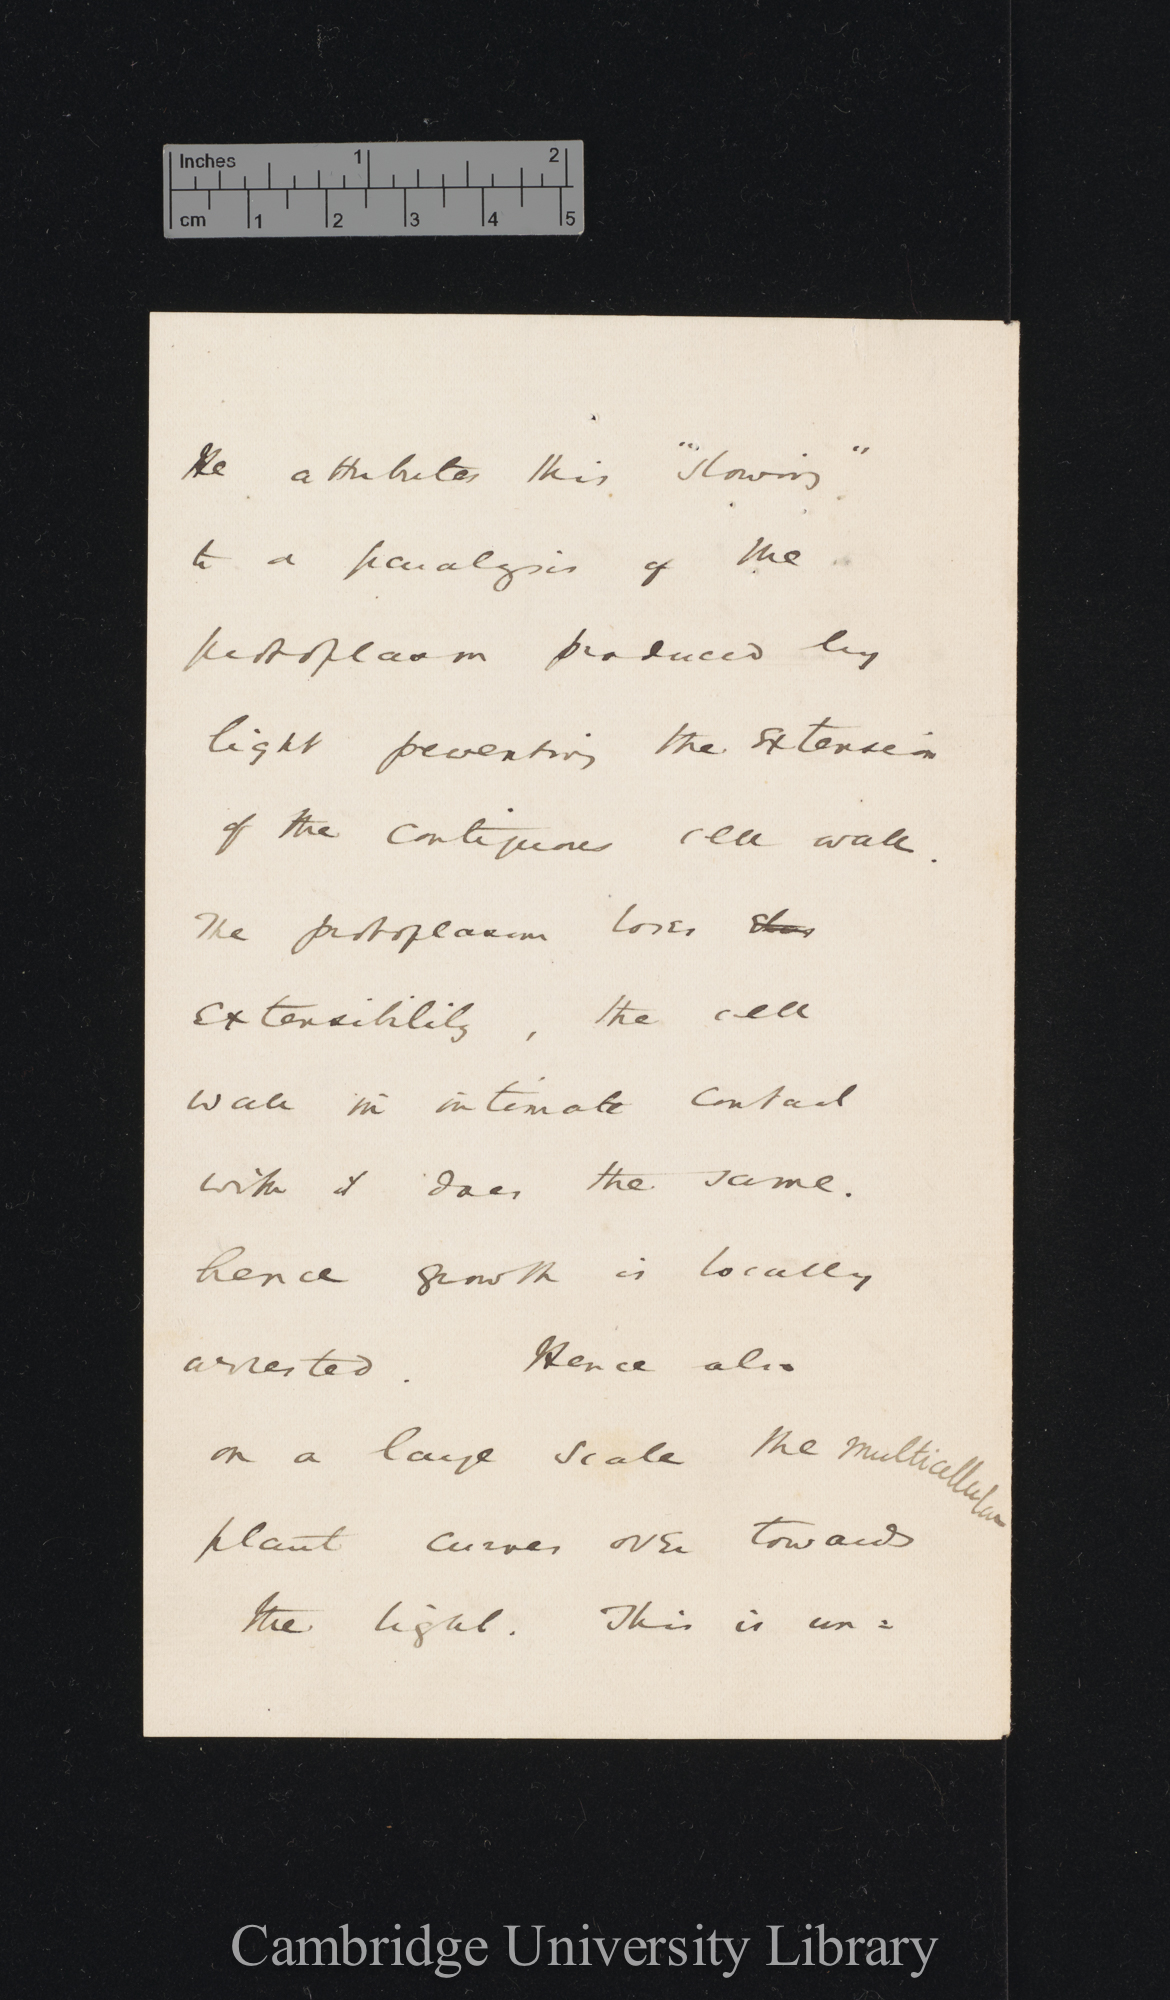 Inches 1 2
cm 1 2 3 4 5
He attributes this "slowing"
to a paralysis of the
protoplasm produced by
light preventing the extension
of the contiguous cell wall.
The protoplasm loses
extensibility, the cell
wall in intimate contact
with it does the same.
hence growth is locally
arrested. Hence also
on a large scale the multicellular
plant curves over towards
the light. This is un=
Cambridge University Library